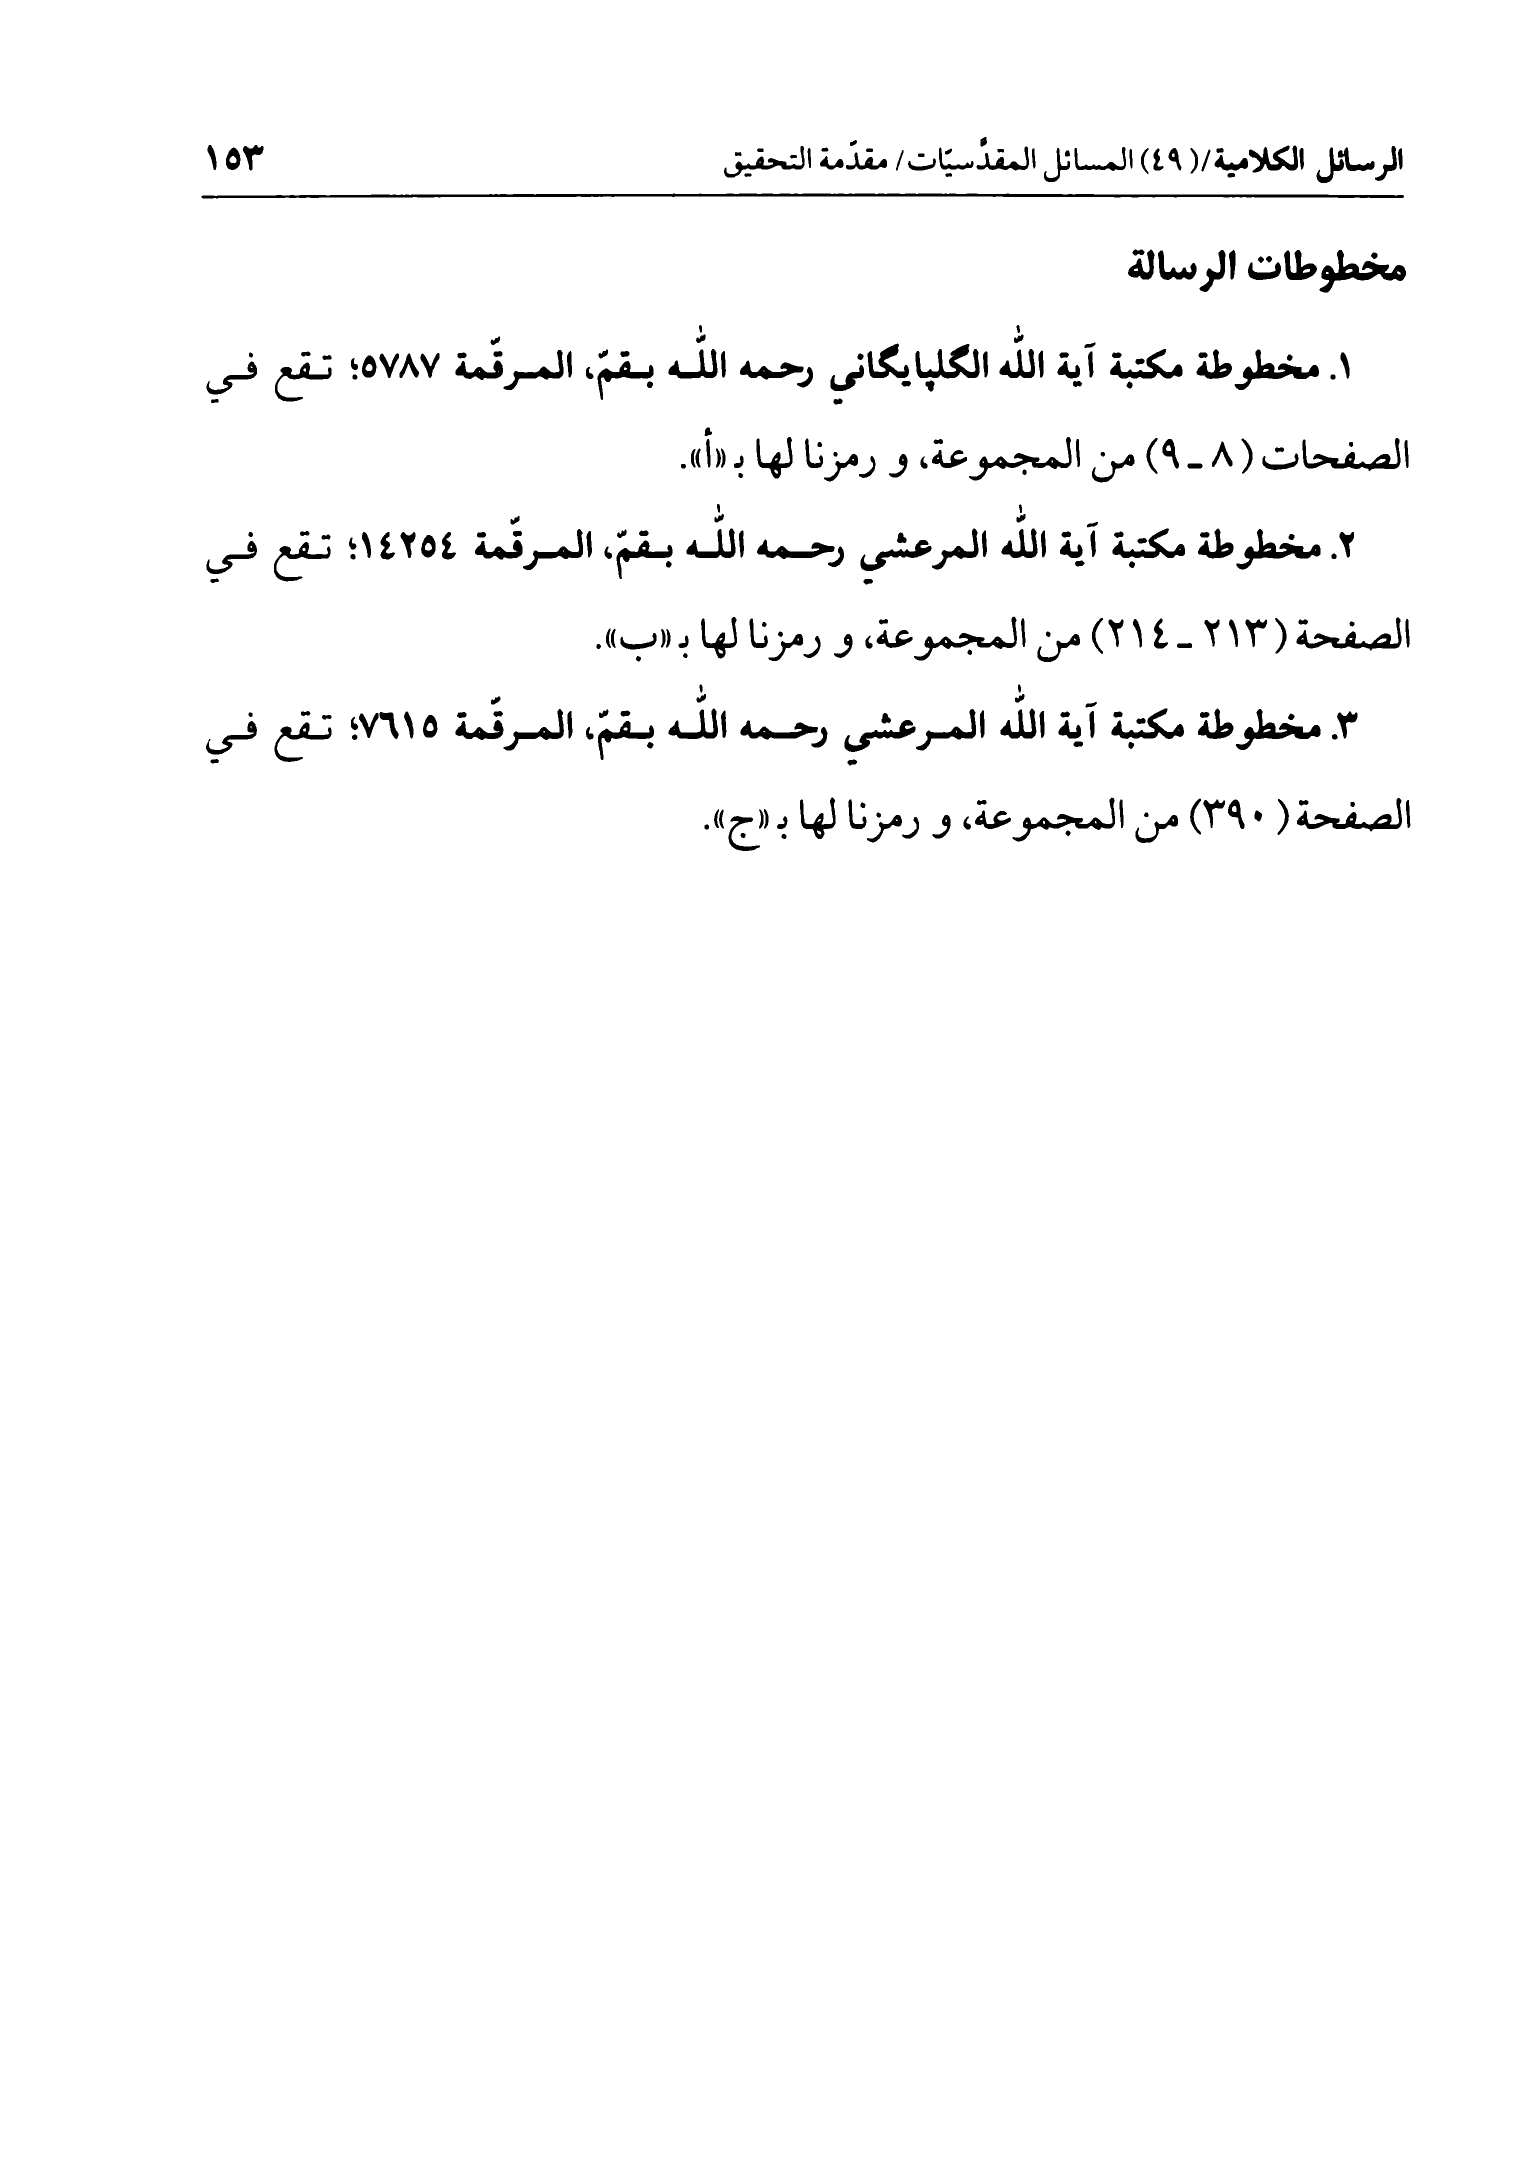 الرسائل الكلامية/(٤٩) المسائل المقدَّسيّات/ مقدّمة التحقيق ١٥٣
مخطوطات الرسالة
١. مخطوطة مكتبة آية اللّٰه الگلپايگاني رحمه اللّٰه بـقمّ، المـرقّمة ٥٧٨٧؛ تـقع فـي
الصفحات (٨ ـ ٩) من المجموعة، و رمزنا لها بـ «أ».
٢. مخطوطة مكتبة آية اللّٰه المرعشي رحـمه اللّٰه بـقمّ، المـرقّمة ١٤٢٥٤؛ تـقع فـي
الصفحة (٢١٣ ـ ٢١٤) من المجموعة، و رمزنا لها بـ «ب».
٣. مخطوطة مكتبة آية اللّٰه المـرعشي رحـمه اللّٰه بـقمّ، المـرقّمة ٧٦١٥؛ تـقع فـي
الصفحة (٣٩٠) من المجموعة، و رمزنا لها بـ «ج».